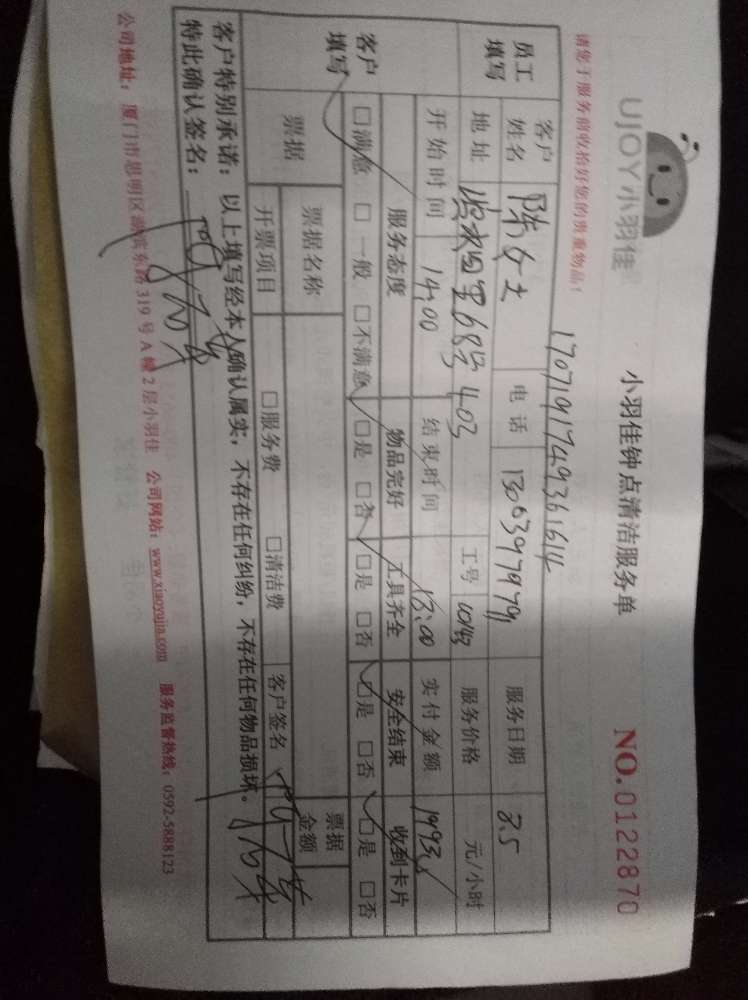 UJOY小羽佳
小羽佳钟点清洁服务单 NO.0122870
请您于服务前收拾好您的贵重物品！ 1707191749361614
员工填写 客户姓名 陈女士 电话 服务日期 2.5
地址 滨水四里68号403 工号 服务价格 元/小时
开始时间 14:00 结束时间 实付金额
客户填写 服务态度 物品完好 工具齐全 安全结束 收到卡片
□满意 □一般 □不满意 □是 □否 □是 □否 □是 □否 □是 □否
票据 票据名称 票据金额
开票项目 □服务费 □清洁费 客户签名
客户特别承诺：以上填写经本人确认属实，不存在任何纠纷，不存在任何物品损坏。
特此确认签名：
公司地址：厦门市思明区湖滨东路319号A幢2层小羽佳 公司网站：www.xiaoyujia.com 服务监督热线：0592-5888123